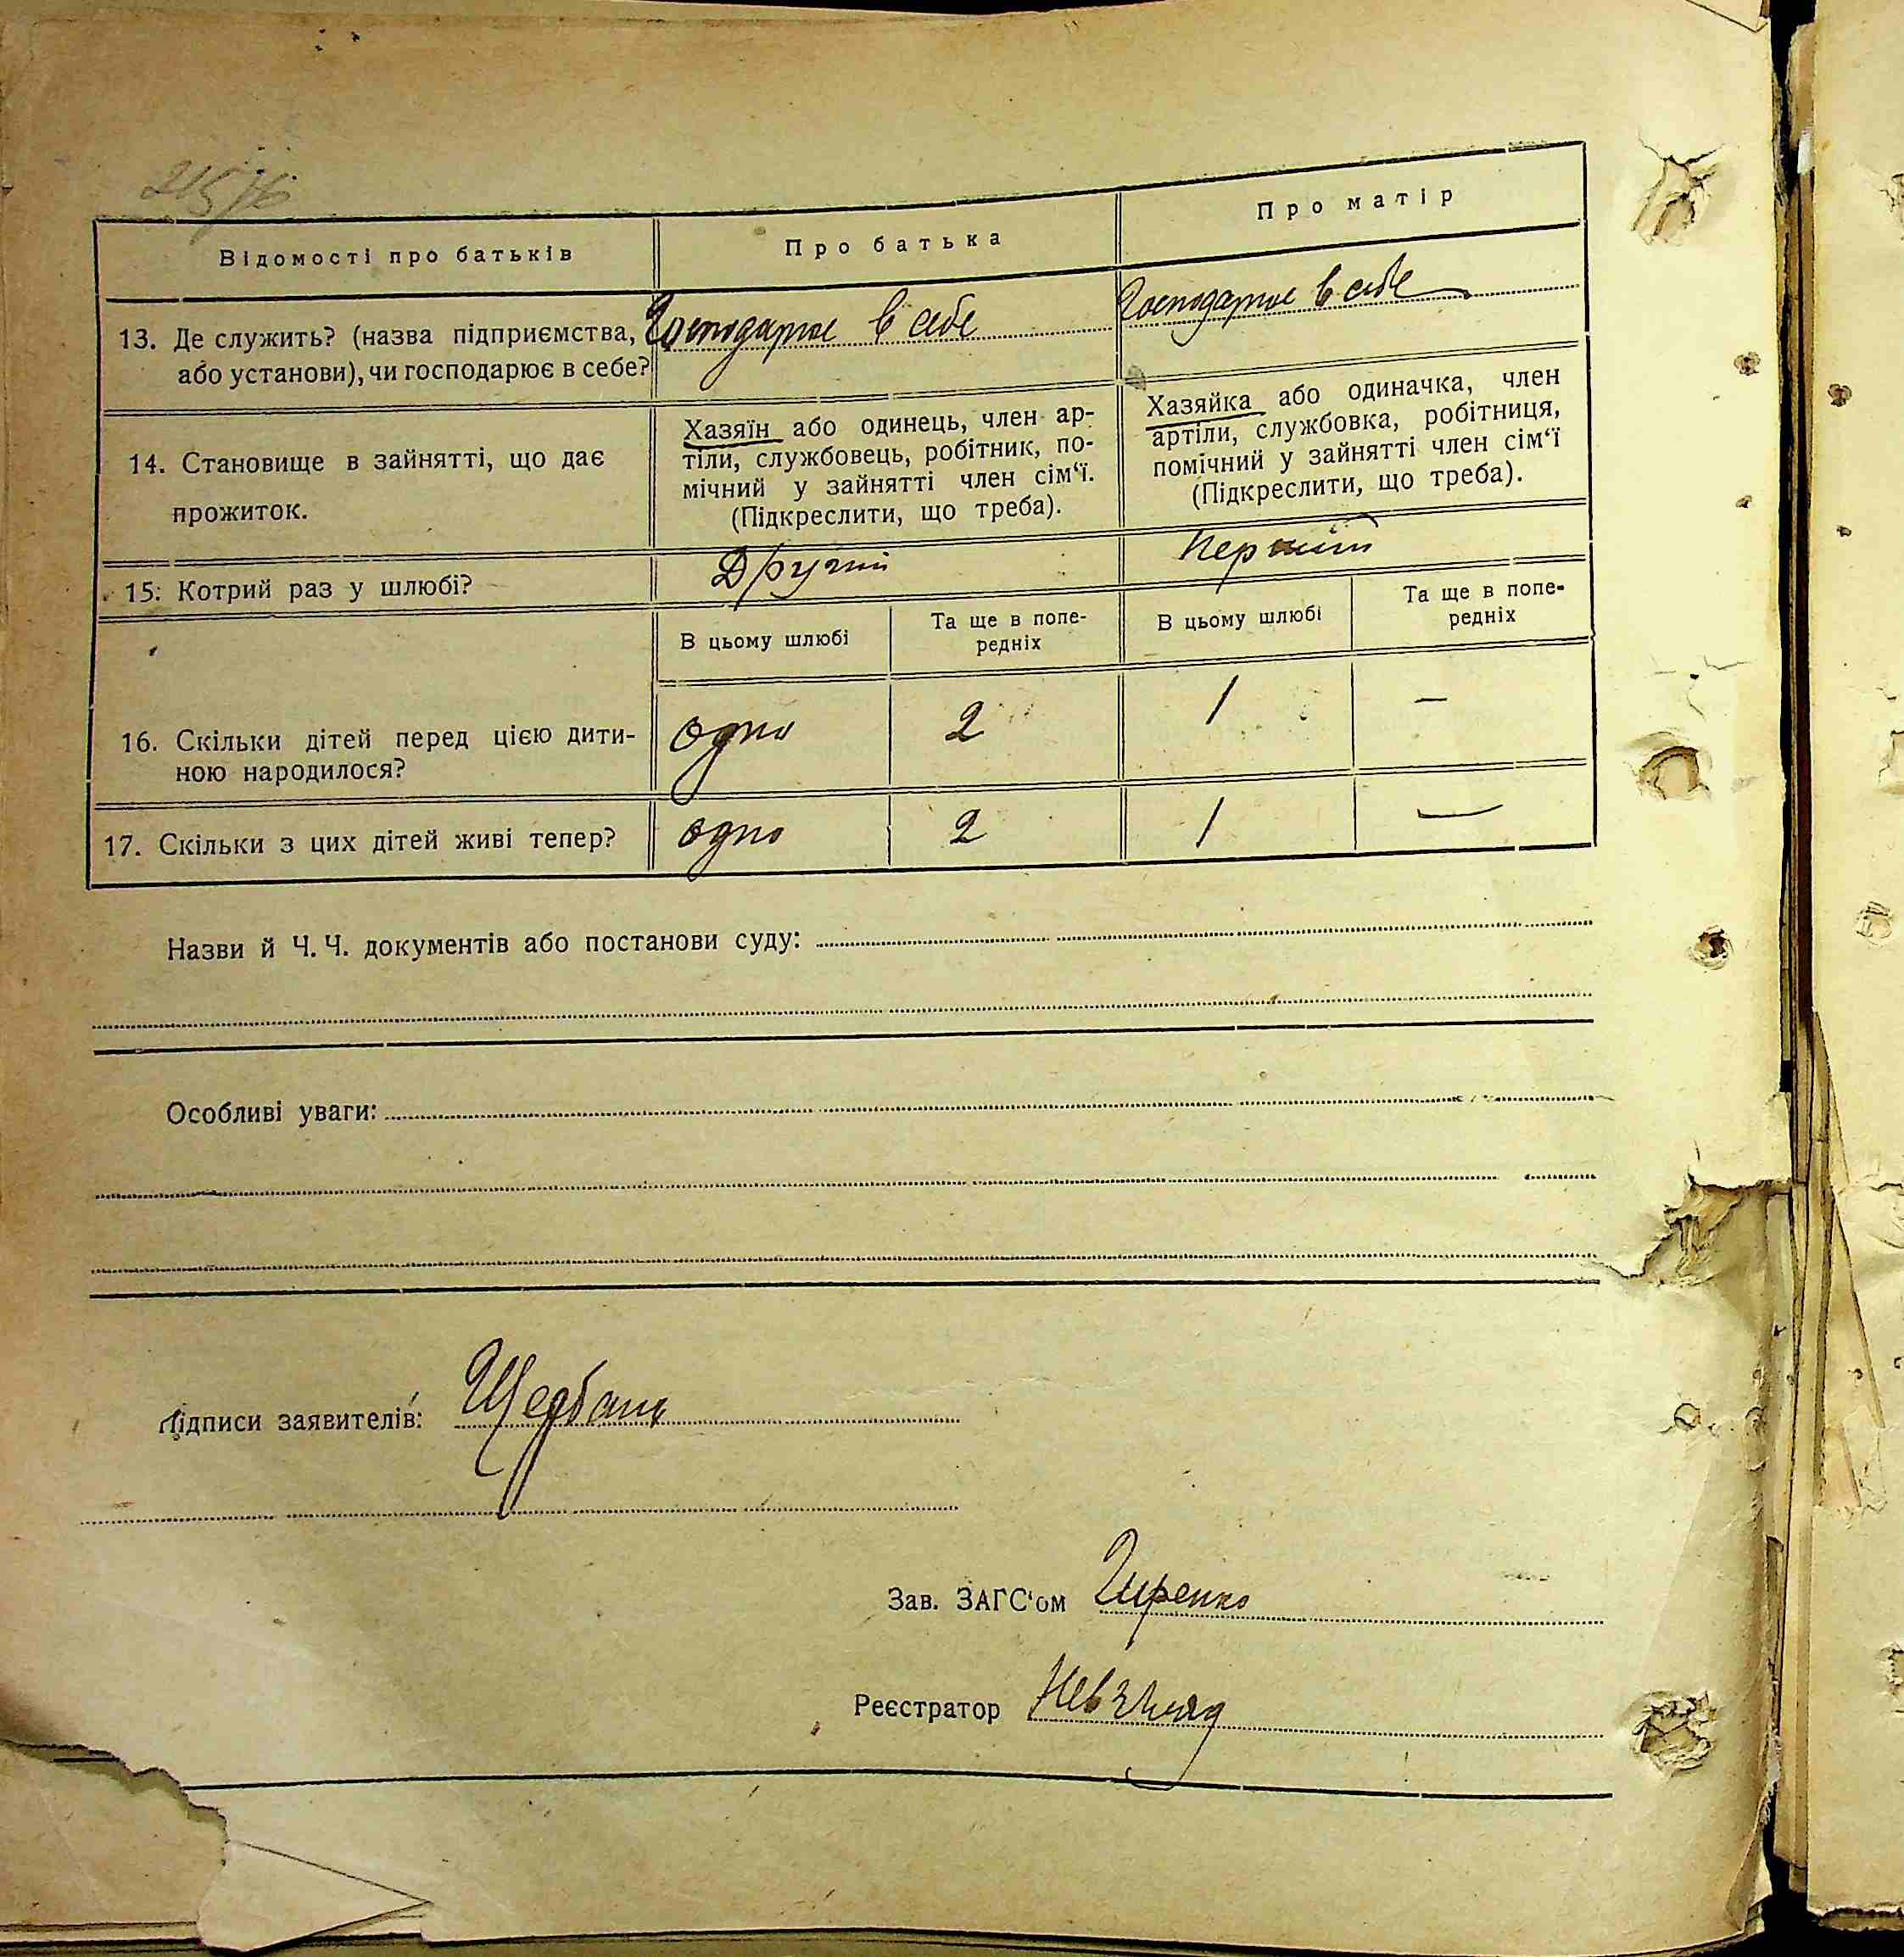 Відомості про батьків
Про батька
Про матір
13. Де служить? (назва підприємства,
або установи), чи господарює в себе?
Господарює в себе
Господарює в себе
14. Становище в зайнятті, що дає
прожиток.
Хазяїн або одинець, член ар-
тіли, службовець, робітник, по-
мічний у зайнятті член сім‘ї.
(Підкреслити, що треба).
Хазяйка або одиначка, член
артіли, службовка, робітниця,
помічний у зайнятті член сім‘ї
(Підкреслити, що треба).
15. Котрий раз у шлюбі?
Другий
Перший
В цьому шлюбі
Та ще в попе-
редніх
В цьому шлюбі
Та ще в попе-
редніх
16. Скільки дітей перед цією дити-
ною народилося?
одно
2
1
—
17. Скільки з цих дітей живі тепер?
одно
2
1
—
Назви й Ч. Ч. документів або постанови суду:
Особливі уваги:
Підписи заявителів: Щербань
Зав. ЗАГС‘ом Гиренко
Реєстратор